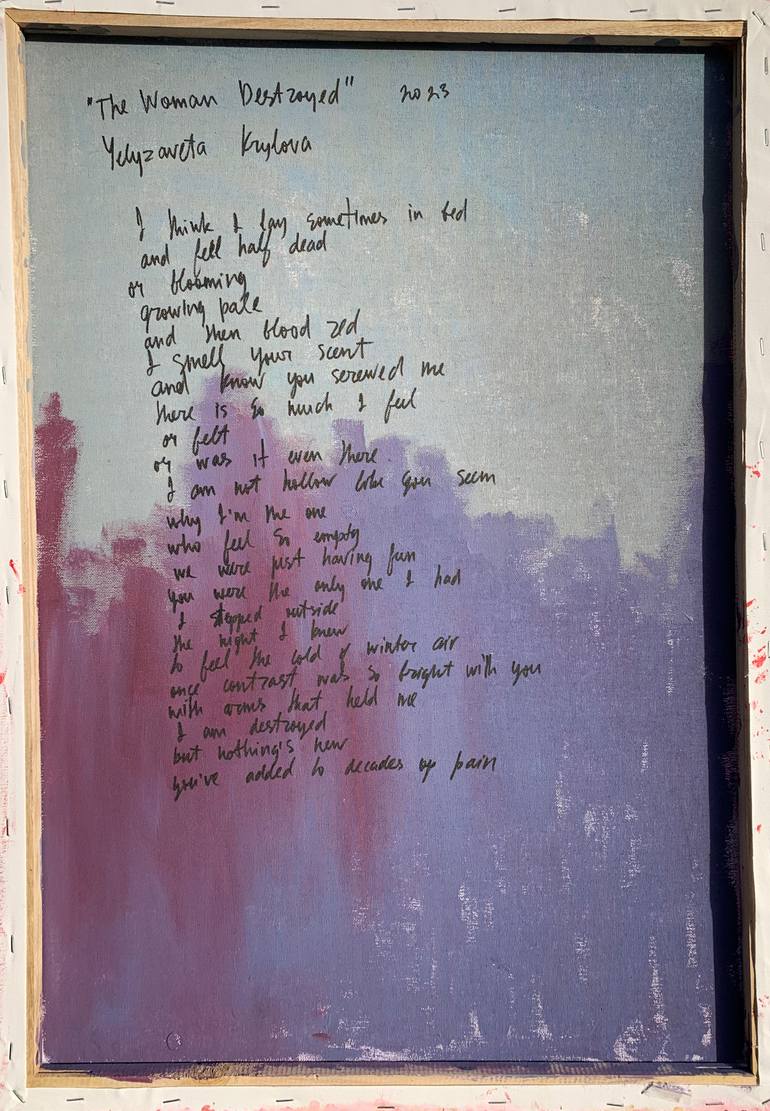 "The Woman Destroyed" 2023
Yelyzaveta Krylova
I think I lay sometimes in bed
and fell half dead
or blooming
growing pale
and then blood red
I smell your scent
and know you screwed me
there is so much I feel
or felt
or was it even there
I am not hollow like you seem
why I'm the one
who feel so empty
we were just having fun
you were the only one I had
I stepped outside
the night I knew
to feel the cold of winter air
once contrast was so bright with you
with arms that held me
I am destroyed
but nothing's new
you've added to decades of pain